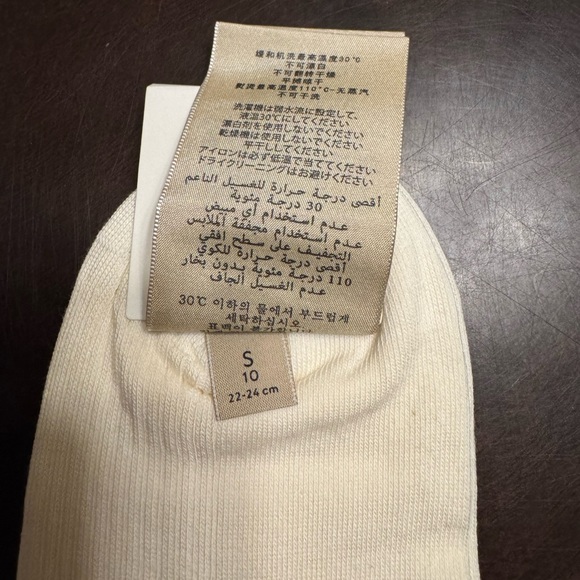 缓和机洗最高温度30℃
不可漂白
不可翻转干燥
平摊晾干
熨烫最高温度110℃-无蒸汽
不可干洗
洗濯機は微水流に設定して、
液温30℃にしてください
漂白剤を使用しないでください
乾燥機は使用しないでください
平干ししてください
アイロンは必ず低温で当ててください
ドライクリーニングはお避けください
أقصى درجة حرارة للغسيل الناعم
30 درجة مئوية
عدم استخدام أي مبيض
عدم استخدام مجففة الملابس
التجفيف على سطح أفقي
أقصى درجة حرارة للكوي
110 درجة مئوية بدون بخار
عدم الغسيل الجاف
30℃ 이하의 물에서 부드럽게
세탁하십시오
표백이
S
10
22-24 cm